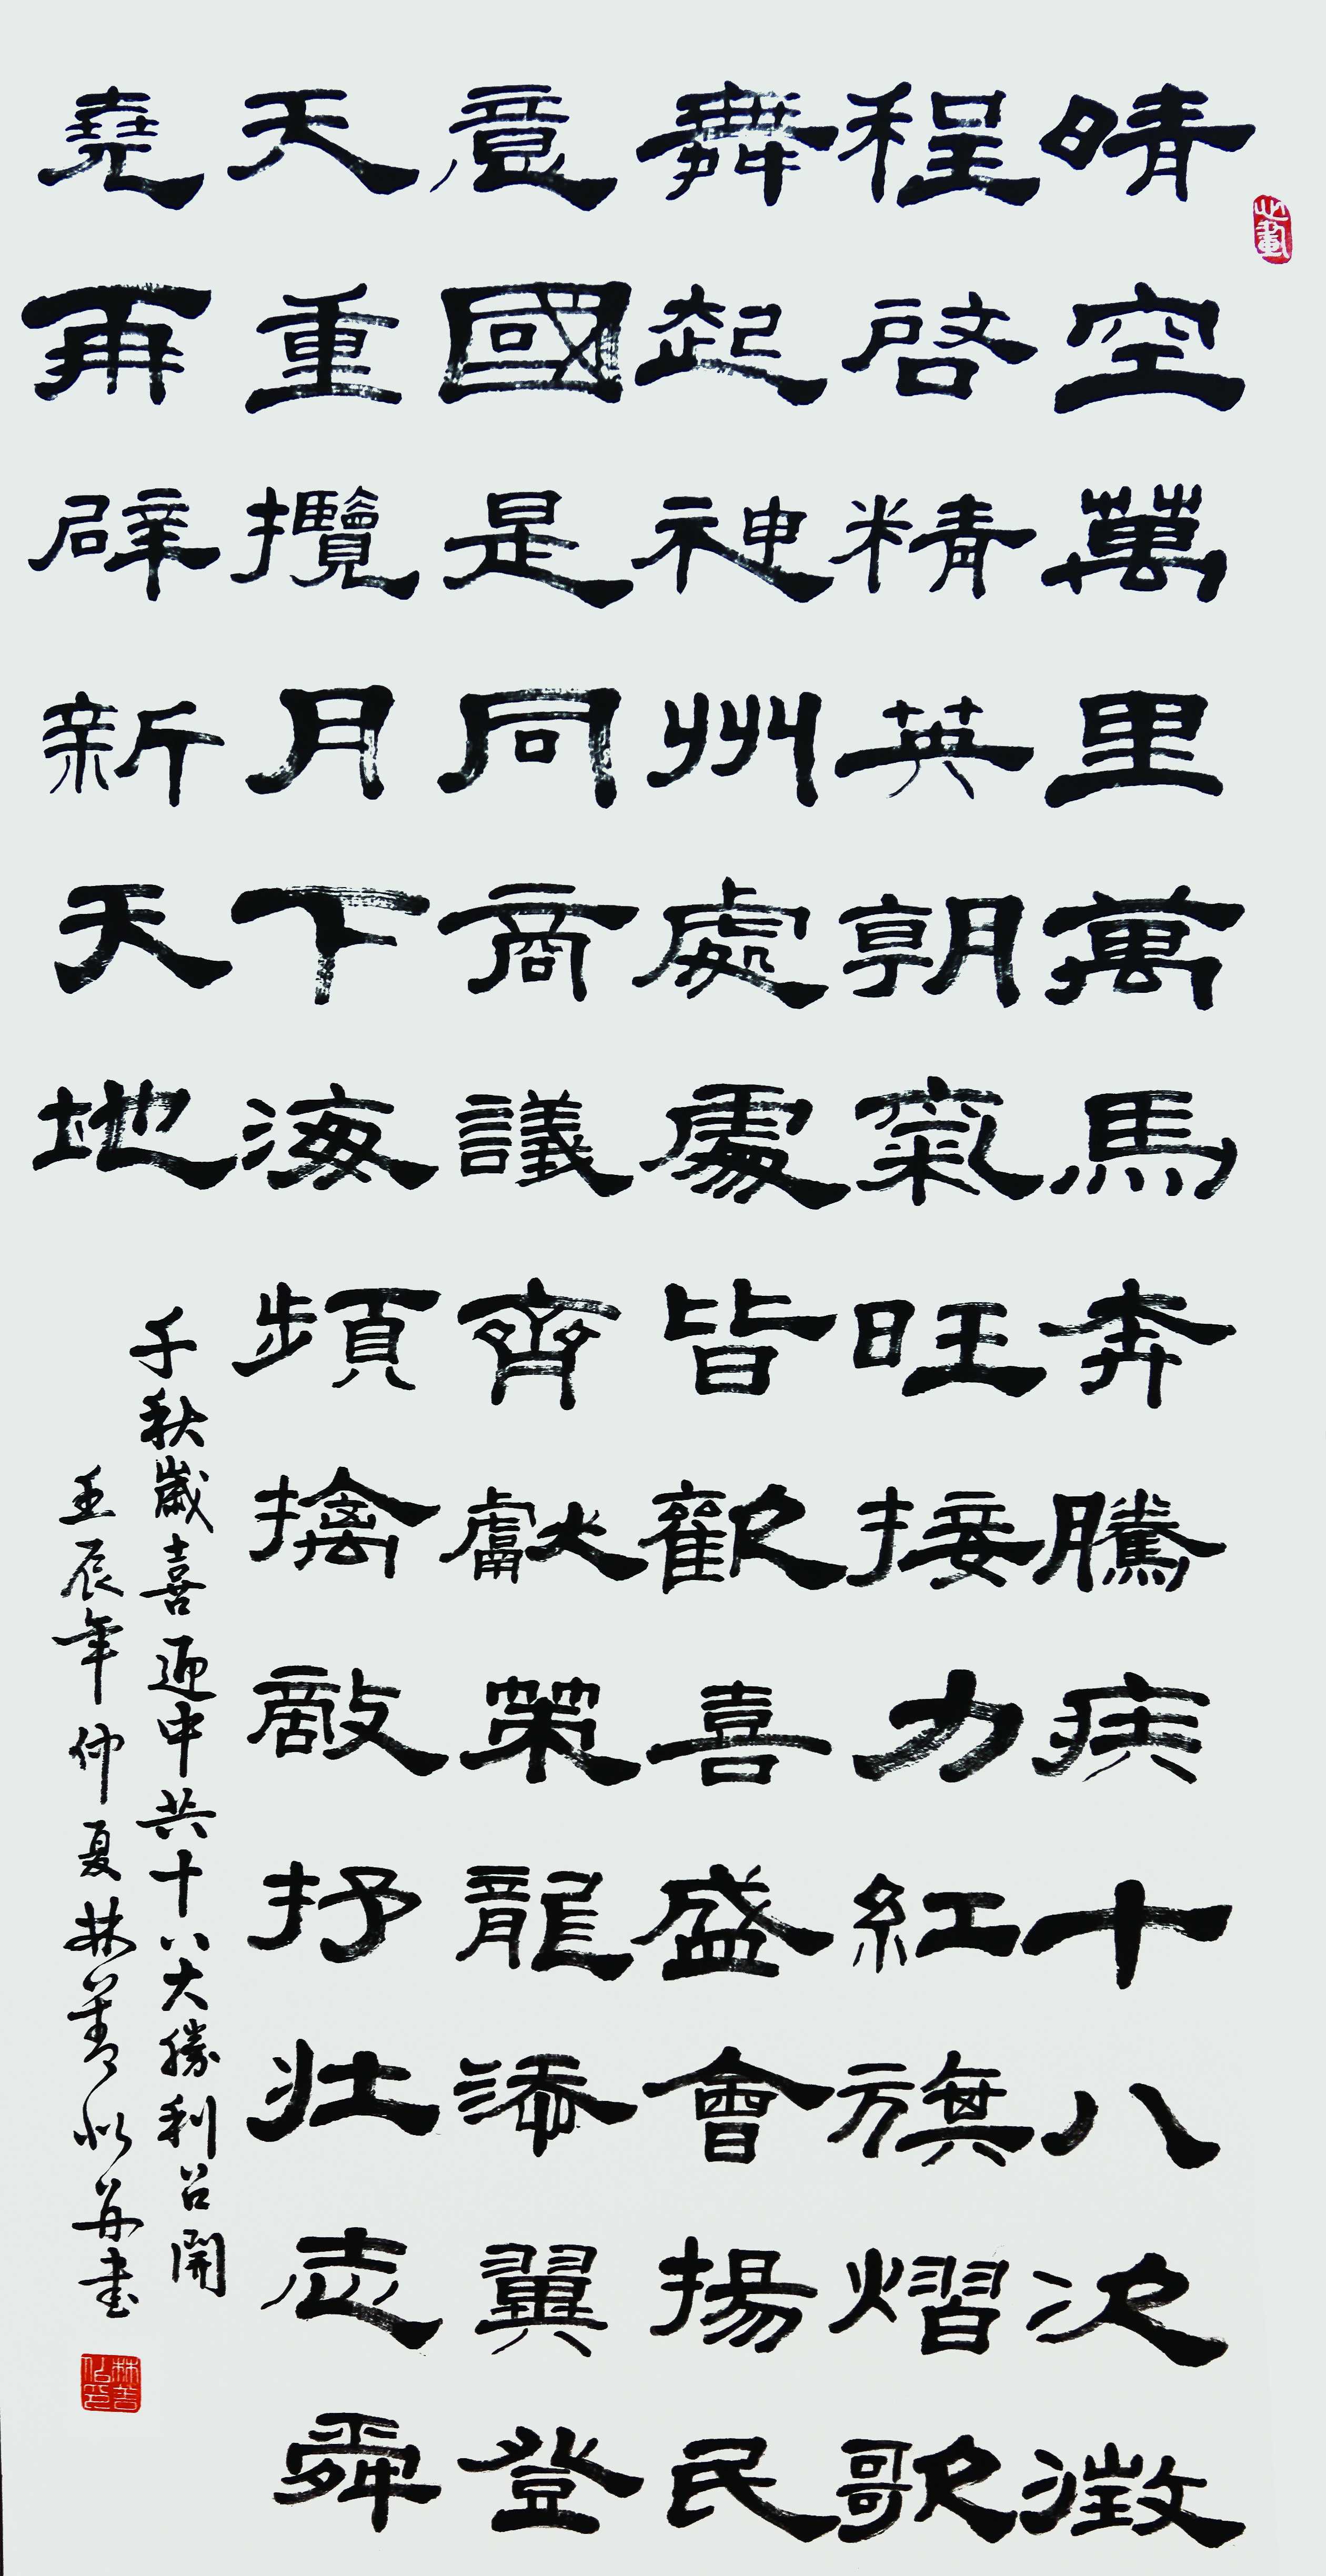 晴空萬里萬馬奔騰疾十八次澂
程啓精英朝氣旺接力紅旗熠歌
舞起神州處處皆歡喜盛會揚民
意國是同商議齊獻策龍添翼登
天重攬月下海頻擒敵抒壯志舜
堯再辟新天地
千秋歲喜迎中共十八大勝利召開
壬辰年仲夏林善似并書